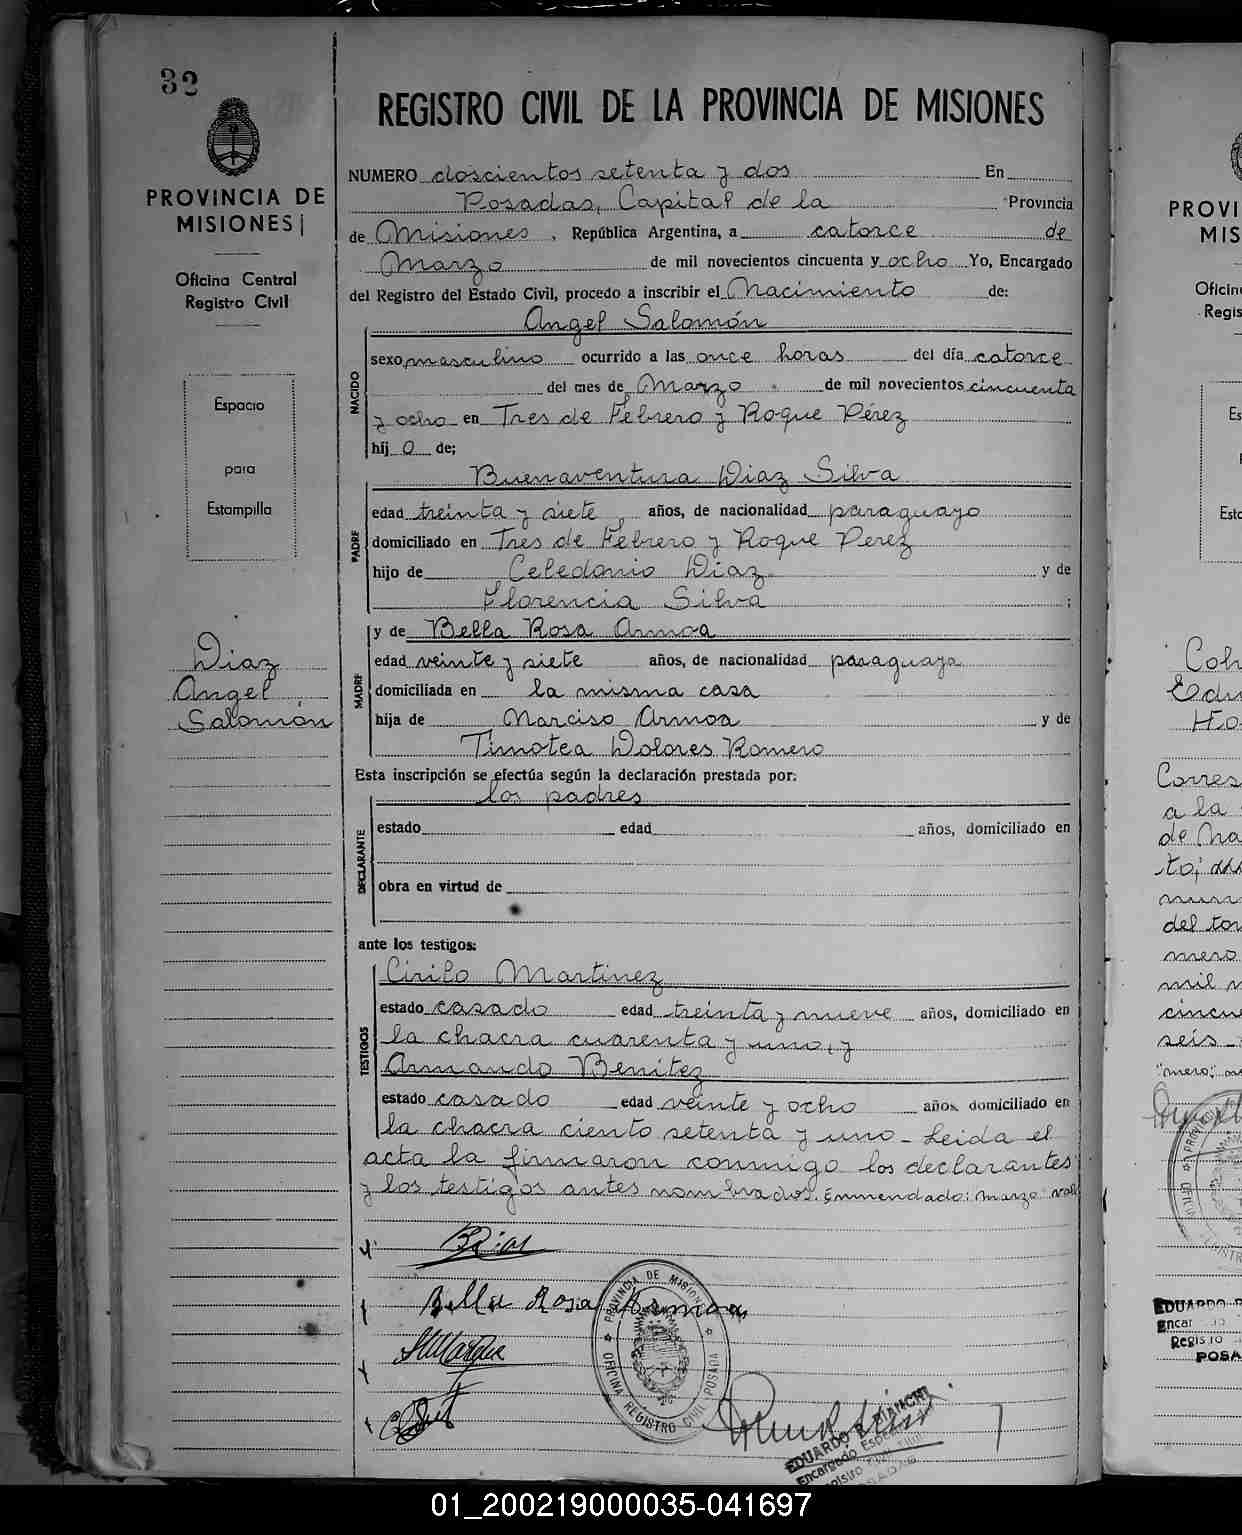 32
PROVINCIA DE
MISIONES
Oficina Central
Registro Civil
Espacio
para
Estampilla
Diaz
Angel
Salomón
REGISTRO CIVIL DE LA PROVINCIA DE MISIONES
NUMERO doscientos setenta y dos En
Posadas, Capital de la Provincia
de Misiones, República Argentina, a catorce de
Marzo de mil novecientos cincuenta y ocho Yo, Encargado
del Registro del Estado Civil, procedo a inscribir el Nacimiento de:
Angel Salomón
NACIDO
sexo masculino ocurrido a las once horas del día catorce
del mes de Marzo de mil novecientos cincuenta
y ocho en Tres de Febrero y Roque Pérez
hij o de;
Buenaventura Diaz Silva
PADRE
edad treinta y siete años, de nacionalidad paraguayo
domiciliado en Tres de Febrero y Roque Perez
hijo de Celedonio Diaz y de
Florencia Silva ;
MADRE
y de Bella Rosa Armoa
edad veinte y siete años, de nacionalidad paraguaya
domiciliada en la misma casa
hija de Narciso Armoa y de
Timotea Dolores Romero
Esta inscripción se efectúa según la declaración prestada por:
los padres
DECLARANTE
estado edad años, domiciliado en
obra en virtud de
ante los testigos:
TESTIGOS
Cirilo Martinez
estado casado edad treinta y nueve años, domiciliado en
la chacra cuarenta y uno, y
Armando Benitez
estado casado edad veinte y ocho años, domiciliado en
la chacra ciento setenta y uno - Leida el
acta la firmaron conmigo los declarantes
y los testigos antes nombrados. Enmendado: marzo vale
Bella Rosa Armoa
PROVINCIA DE MISIONES
OFICINA REGISTRO CIVIL POSADAS
EDUARDO R. BIANCHI
Encargado
PROVI
MIS
Oficin
Regis
Es
Esta
Corres
a la
de Na
to;
del tom
mero
mil n
cincue
seis
EDUARDO R
Encar
Regis ro
POSA
01_200219000035-041697